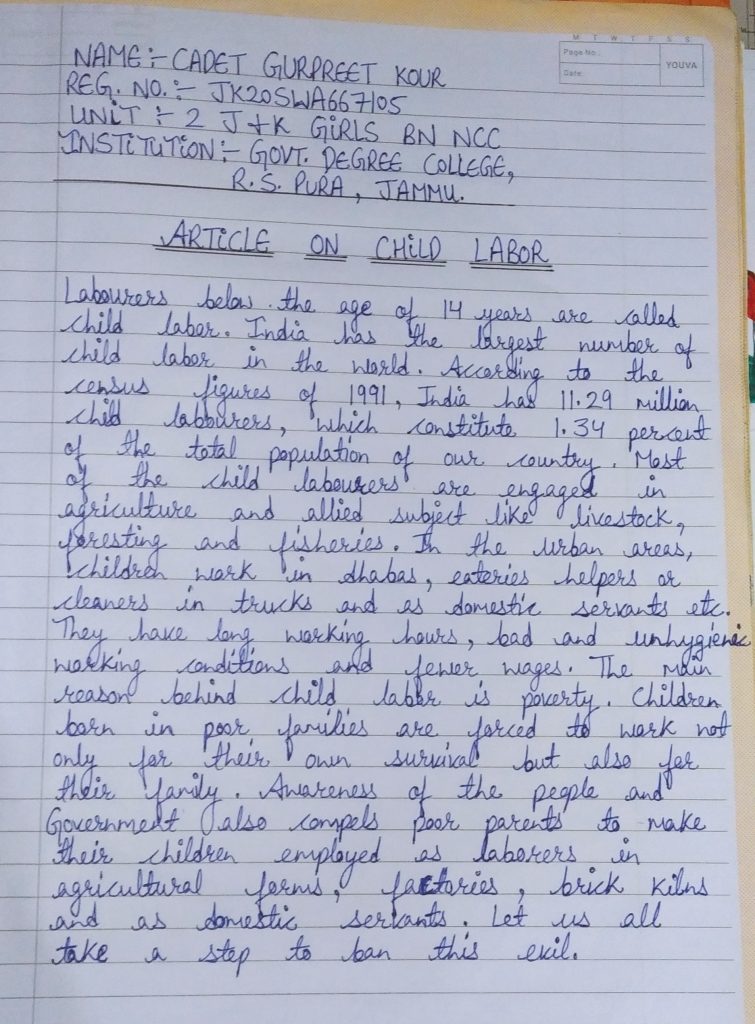 M T W T F S S
Page No.:
YOUVA
Date:
NAME:- CADET GURPREET KOUR
REG. NO.:- JK20SWA667105
UNIT:- 2 J+K GIRLS BN NCC
INSTITUTION:- GOVT. DEGREE COLLEGE,
R.S. PURA, JAMMU.
ARTICLE ON CHILD LABOR
Labourers below the age of 14 years are called
child labor. India has the largest number of
child labor in the world. According to the
census figures of 1991, India has 11.29 million
child labourers, which constitute 1.34 percent
of the total population of our country. Most
of the child labourers are engaged in
agriculture and allied subject like livestock,
foresting and fisheries. In the urban areas,
children work in dhabas, eateries helpers or
cleaners in trucks and as domestic servants etc.
They have long working hours, bad and unhygienic
working conditions and fewer wages. The main
reason behind child labor is poverty. Children
born in poor families are forced to work not
only for their own survival but also for
their family. Awareness of the people and
Government also compels poor parents to make
their children employed as laborers in
agricultural forms, factories, brick kilns
and as domestic servants. Let us all
take a step to ban this evil.